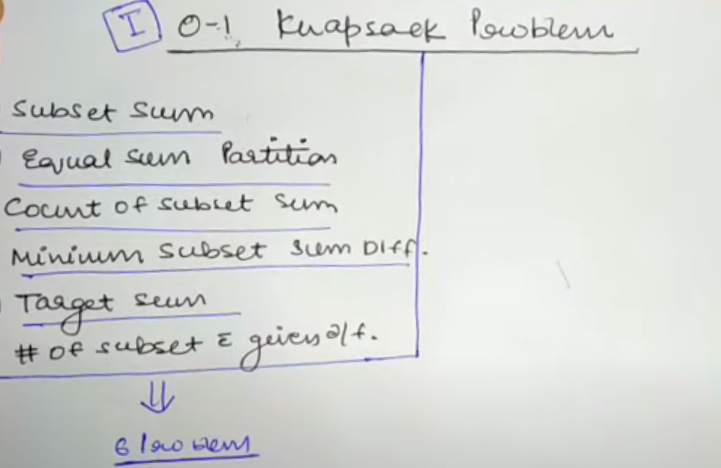 I 0-1 Knapsack Problem
Subset Sum
Equal Sum Partition
Count of Subset Sum
Minimum Subset Sum Diff.
Target Sum
# of subset c̄ given diff.
⇓
6 Problem